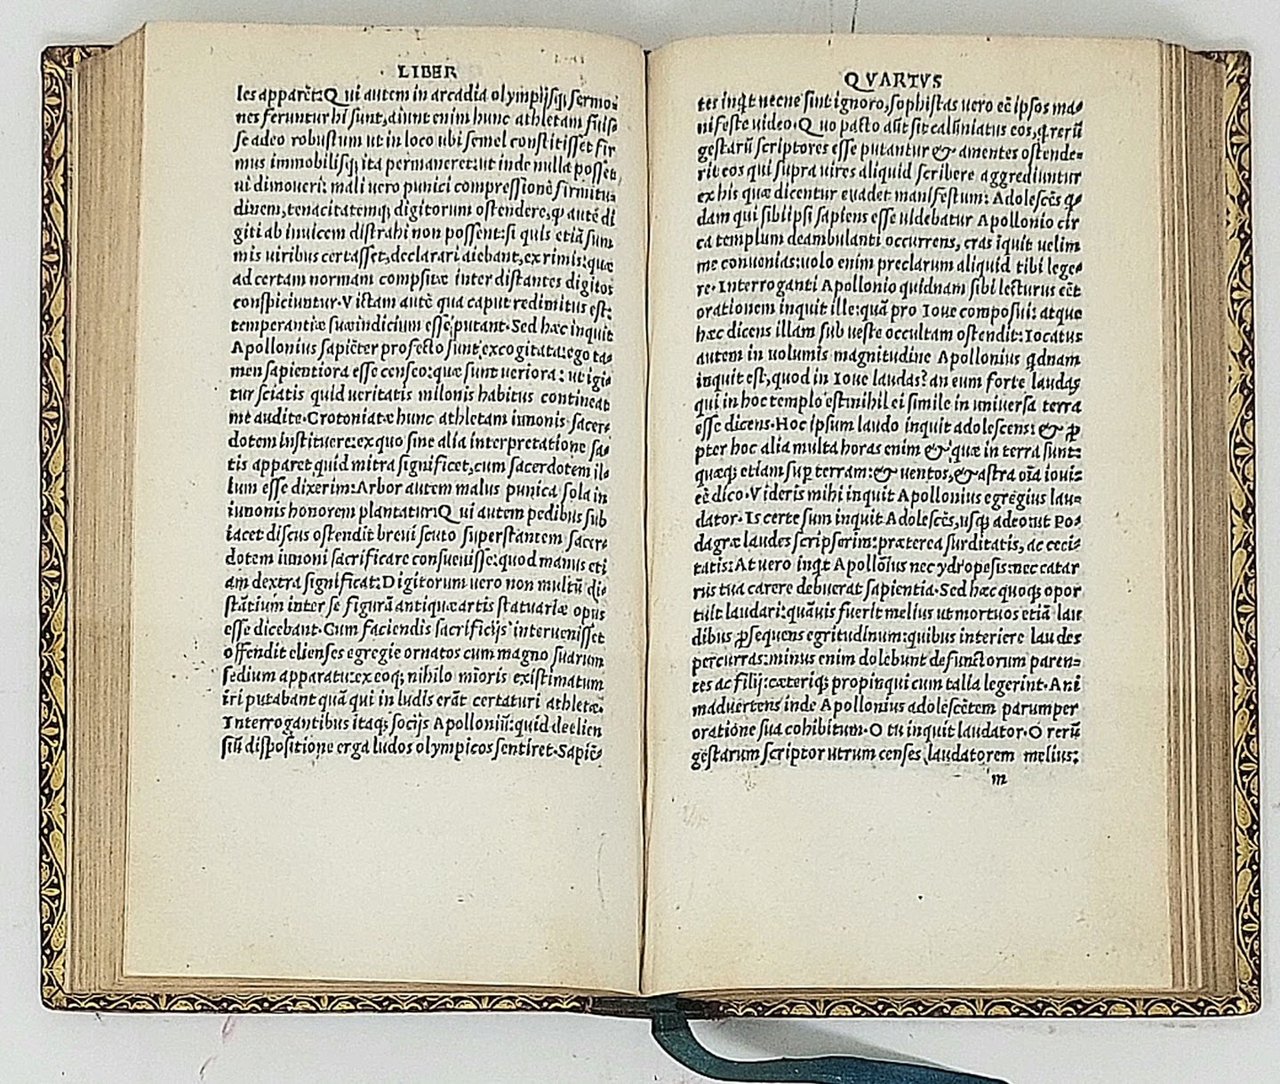 LIBER
les apparēt: Qui autem in arcadia olympijsq; sermo-
nes feruntur hi sunt, aiunt enim hunc athletam fuis-
se adeo robustum ut in loco ubi semel constitisset fir
mus immobilisq; ita permaneret: ut inde nulla posset
ui dimoueri: mali uero punici compressionē firmitu-
dinem, tenacitatemq; digitorum ostendere, q̃ autē di
giti ab inuicem distrahi non possent: si quis etiā sum
mis uiribus certasset, declarari aiebant, ex rimis: quæ
ad certam normam compsitæ inter distantes digitos
conspiciuntur. Vittam autē qua caput redimitus est:
temperantiæ suæ indicium esse putant. Sed hæc inquit
Apollonius sapiēter profecto sunt excogitata: ego ta-
men sapientiora esse censeo: quæ sunt ueriora: ut igi-
tur sciatis quid ueritatis milonis habitus contineat
me audite. Crotoniatæ hunc athletam iunonis sacer-
dotem instituere: ex quo sine alia interpretatione sa-
tis apparet quid mitra significet, cum sacerdotem il-
lum esse dixerim: Arbor autem malus punica sola in
iunonis honorem plantatur: Qui autem pedibus sub
iacet discus ostendit breui scuto superstantem sacer-
dotem iunoni sacrificare consueuisse: quod manus eti
am dextra significat: Digitorum uero non multū di-
stātium inter se figurā antiquæ artis statuariæ opus
esse dicebant. Cum faciendis sacrificijs interuenisset
offendit elienses egregie ornatos cum magno suarum
sedium apparatu: ex eoq; nihilo mīoris existimatum
iri putabant quā qui in ludis erāt certaturi athletæ.
Interrogantibus itaq; socijs Apolloniū: quid de elien
siū dispositione erga ludos olympicos sentiret. Sapiē-
QVARTVS
tes inqͥt necne sint ignoro, sophistas uero eē ipsos ma-
nifeste uideo. Quo pacto aūt sit calūniatus eos, q rerū
gestarū scriptores esse putantur & amentes ostende-
rit eos qui supra uires aliquid scribere aggrediuntur
ex his quæ dicentur euadet manifestum: Adolescēs q-
dam qui sibi ipsi sapiens esse uidebatur Apollonio cir
ca templum deambulanti occurrens, cras iquit uelim
me conuenias: uolo enim preclarum aliquid tibi lege-
re. Interroganti Apollonio quidnam sibi lecturus eēt
orationem inquit ille: quā pro Ioue composui: atque
hæc dicens illam sub ueste occultam ostendit: Iocatus
autem in uolumis magnitudine Apollonius qdnam
inquit est, quod in Ioue laudas? an eum forte laudas
qui in hoc templo est nihil ei simile in uniuersa terra
esse dicens. Hoc ipsum laudo inquit adolescens: & p̱
pter hoc alia multa horas enim & quæ in terra sunt:
quæq; etiam sup̱ terram: & uentos, & astra oīa iouis
eē dico. Videris mihi inquit Apollonius egregius lau-
dator. Is certe sum inquit Adolescēs, usq̃ adeo: ut po-
dagræ laudes scripserim: præterea surditatis, ac ceci-
tatis: At uero inqͥt Apollōius nec ydropesis: nec catar
rus tua carere debuerat sapientia. Sed hæc quoq; opor
tuit laudari: quāuis fuerit melius ut mortuos etiā lau
dibus p̱sequens egritudinum: quibus interiere laudes
percurras: minus enim dolebunt defunctorum paren-
tes ac filij: cæteriq; propinqui cum talia legerint. Ani
maduertens inde Apollonius adolescētem parumper
oratione sua cohibitum. O tu inquit laudator. O rerū
gestarum scriptor utrum censes laudatorem melius:
m